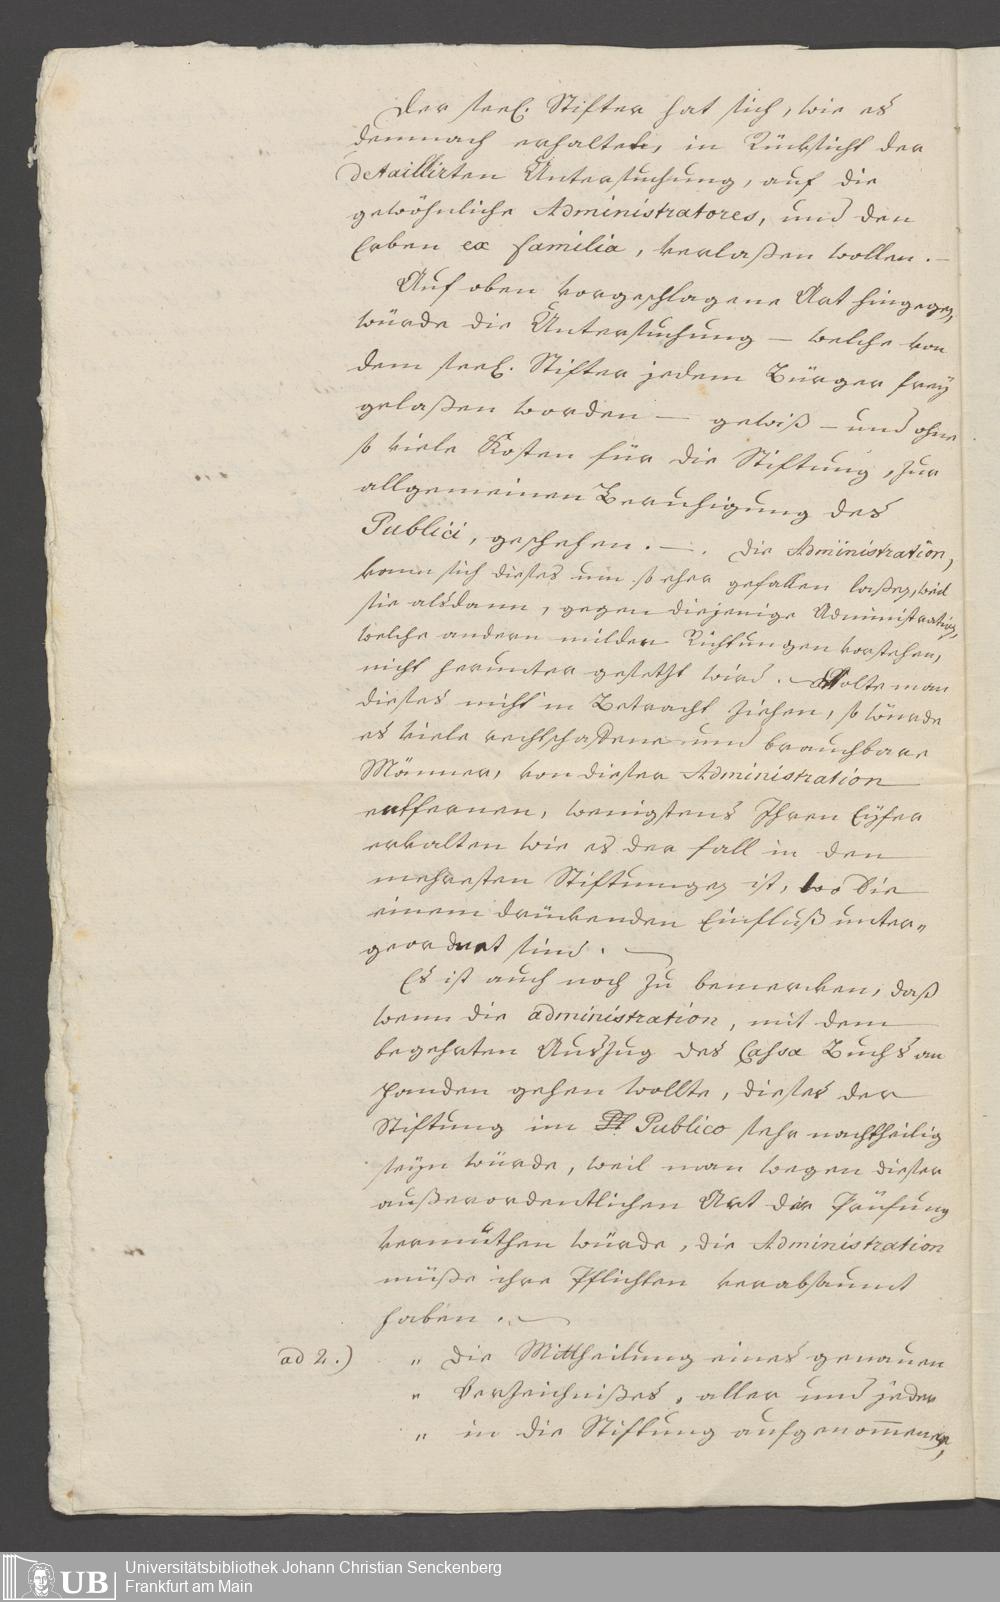 Der seel. Stifter hat sich, wie es
demnach erhaltet, in Rücksicht der
detaillirten Untersuchung, auf die
gewöhnliche Administratores, und den
Erben ex familia, verlaßen wollen. —
Auf oben vorgeschlagene Art hingegen,
würde die Untersuchung — welche von
dem seel. Stifter jedem Bürger frey
gelaßen worden — gewiß — und ohne
so viele Kosten für die Stiftung, zur
allgemeinen Beruhigung des
Publici, geschehen. —. Die Administration,
kann sich dieses um so eher gefallen laßen, weil
sie alsdann, gegen diejenige Administration,
welche andern milden Richtungen vorstehen,
nicht herunter gesetzt wird. — Solte man
dieses nicht in Betracht ziehen, so würde
es viele rechtschaffene und brauchbare
Männer, von dieser Administration
entfernen, wenigstens Ihren Eyfer
erkalten wie es der fall in den
mehresten Stiftungen ist, wo Sie
einem drückenden Einfluß unter„
geordnet sind. —
Es ist auch noch zu bemercken, daß
wenn die administration, mit dem
begehrten Auszug des Cassa Buchs an
Handen gehen wollte, dieses der
Stiftung im Publico sehr nachtheilig
seyn würde, weil man wegen dieser
außerordentlichen Art der Prüfung
vermuthen würde, die Administration
müße ihre Pflichten verabsäumt
haben. —
ad 2.) „ Die Mittheilung eines genauen
„ Verzeichnißes, aller und jeder
„ in die Stiftung aufgenommenen,
UB Universitätsbibliothek Johann Christian Senckenberg
Frankfurt am Main